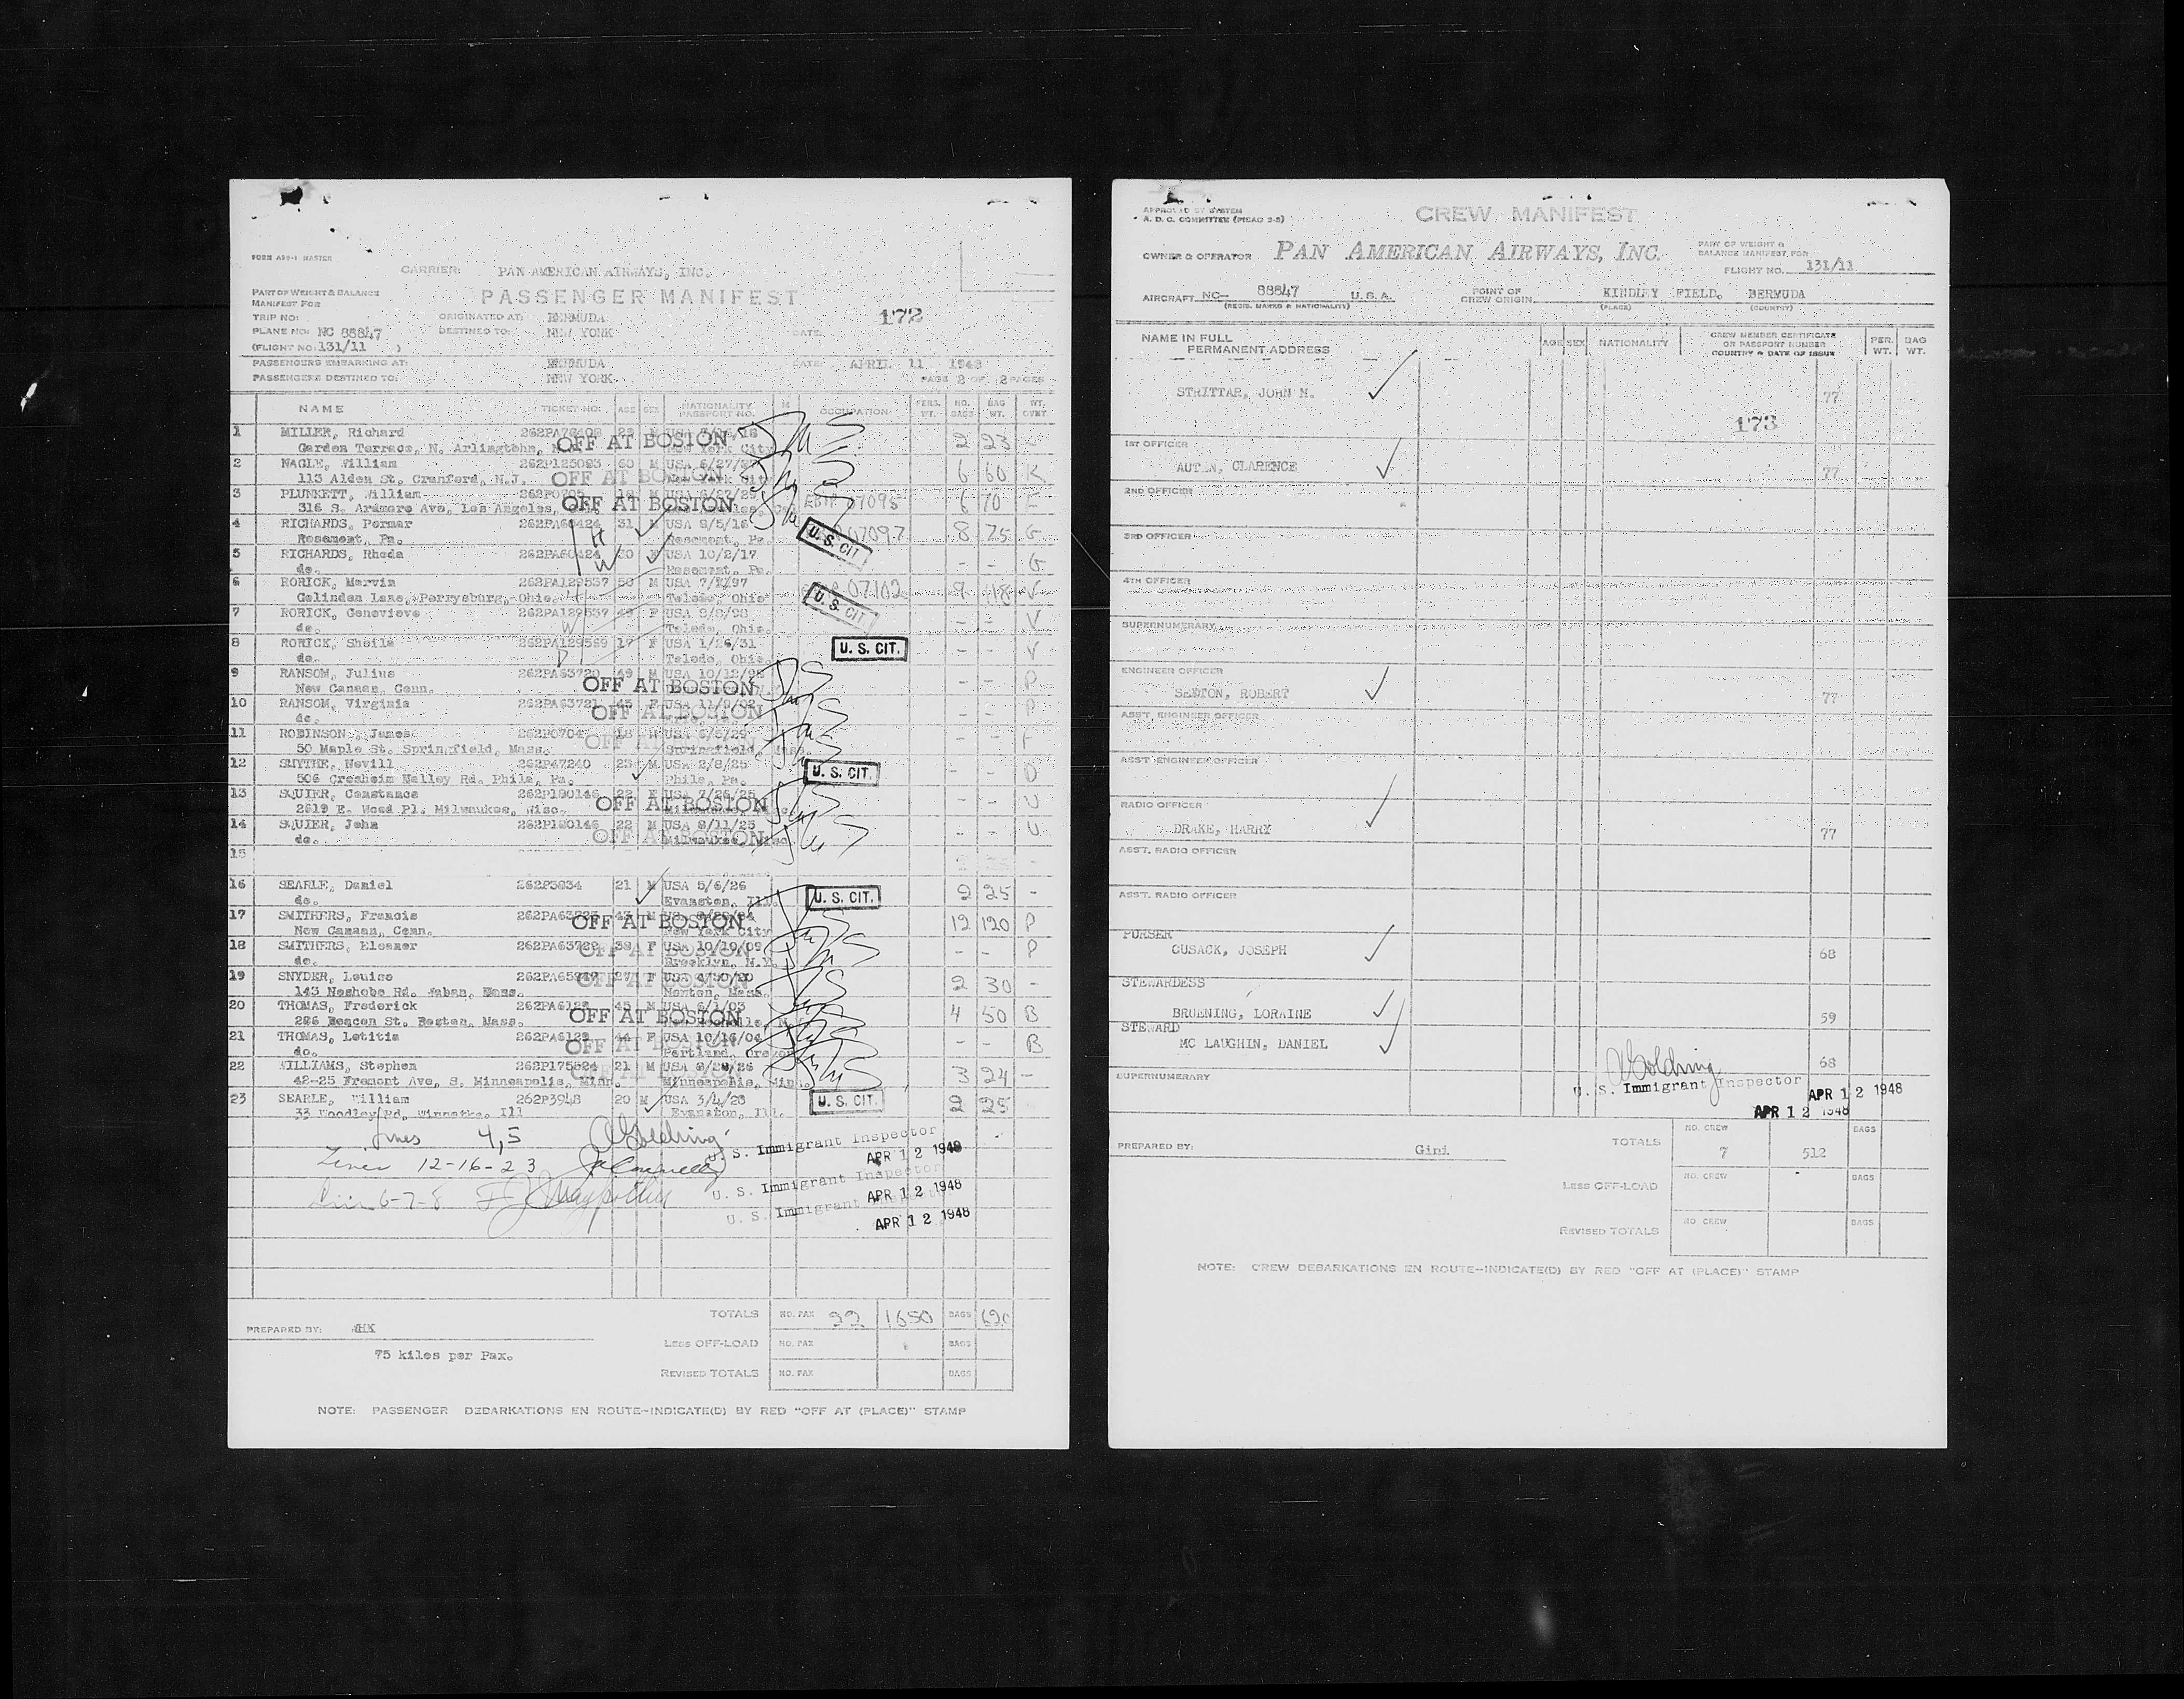 FORM ADV-1 MASTER
CARRIER: PAN AMERICAN AIRWAYS, INC.
PASSENGER MANIFEST
PART OF WEIGHT & BALANCE
MANIFEST FOR
172
TRIP NO: ORIGINATED AT: BERMUDA
PLANE NO: NC 88847 DESTINED TO: NEW YORK DATE:
(FLIGHT NO: 131/11 )
PASSENGERS EMBARKING AT: BERMUDA DATE: APRIL 11 1948
PASSENGERS DESTINED TO: NEW YORK PAGE 2 OF 2 PAGES
NAME TICKET NO. AGE SEX NATIONALITY PASSPORT NO. OCCUPATION PERS. WT. NO. BAGS BAG WT. WT. CVNT.
1 MILLER, Richard OFF AT BOSTON 2 23 -
Garden Terrace, N. Arlington, New York City
2 NAGLE, William 262P125093 60 M USA OFF AT BOSTON 6 60 K
113 Alden St. Cranford, N.J.
3 PLUNKETT, William OFF AT BOSTON 07095 6 70 E
316 S. Ardmore Ave, Los Angeles,
4 RICHARDS, Permar 262PA60424 31 M USA 9/5/16 U. S. CIT. 07097 8 75 G
Rosemont, Pa. Rosemont, Pa.
5 RICHARDS, Rheda 262PA60424 30 USA 10/2/17 - - G
do. Rosemont, Pa.
6 RORICK, Marvin 262PA129537 50 M USA 07102 9 118 V
Colinden Lane, Perrysburg, Ohio. Toledo, Ohio U. S. CIT.
7 RORICK, Genevieve 262PA129537 49 F USA 9/8/98 - - V
do. Toledo, Ohio.
8 RORICK, Sheila 262PA129539 17 F USA 1/26/31 U. S. CIT. - - V
do. Toledo, Ohio.
9 RANSOM, Julius 262PA63720 49 M OFF AT BOSTON - - P
New Canaan, Conn.
10 RANSOM, Virginia 262PA63721 45 F USA 11/9/02 OFF AT BOSTON - - P
do.
11 ROBINSON, James 262P0704 18 M USA 6/5/29 - - F
50 Maple St. Springfield, Mass. Springfield, Mass.
12 SMYTHE, Nevill 262P47240 23 M USA 2/8/25 U. S. CIT. - - D
506 Cresheim Valley Rd. Phila, Pa. Phila, Pa.
13 SQUIER, Constance 262P180146 22 F USA 7/26/25 OFF AT BOSTON - - U
2619 E. Wood Pl. Milwaukee, Wisc.
14 SQUIER, John 262P180146 22 M USA 9/11/25 OFF AT BOSTON - - U
do. Milwaukee, Wisc.
15
16 SEARLE, Daniel 262P3934 21 M USA 5/6/26 U. S. CIT. 2 25 -
do. Evanston, Ill.
17 SMITHERS, Francis OFF AT BOSTON 12 120 P
New Canaan, Conn. New York City
18 SMITHERS, Eleanor 262PA63722 38 F USA 10/19/09 OFF AT BOSTON - - P
do. Brooklyn, N.Y.
19 SNYDER, Louise 27 F USA OFF AT BOSTON 2 30 -
143 Neshobe Rd. Waban, Mass. Newton, Mass.
20 THOMAS, Frederick 262PA6122 45 M USA 6/1/03 OFF AT BOSTON 4 50 B
286 Beacon St. Boston, Mass.
21 THOMAS, Letitia 262PA6122 44 F USA 10/16/04 OFF AT BOSTON - - B
do. Portland, Oregon
22 WILLIAMS, Stephen 262P175524 21 M USA 3 24 -
42-25 Fremont Ave, S. Minneapolis, Minn. Minneapolis, Minn.
23 SEARLE, William 262P3948 20 M USA 3/4/28 U. S. CIT. 2 25
33 Woodley Rd, Winnetka, Ill Evanston, Ill.
Lines 4,5
U. S. Immigrant Inspector APR 12 1948
Lines 12-16-23
U. S. Immigrant Inspector APR 12 1948
6-7-8
U. S. Immigrant Inspector APR 12 1948
TOTALS NO. PAX 22 1650 BAGS 620
PREPARED BY: WHK
LESS OFF-LOAD NO. PAX BAGS
75 kilos per Pax.
REVISED TOTALS NO. PAX BAGS
NOTE: PASSENGER DEBARKATIONS EN ROUTE-INDICATE(D) BY RED "OFF AT (PLACE)" STAMP
APPROVED BY SYSTEM
A. D. C. COMMITTEE (PICAO 2-2)
CREW MANIFEST
OWNER & OPERATOR PAN AMERICAN AIRWAYS, INC.
PART OF WEIGHT &
BALANCE MANIFEST, FOR
FLIGHT NO. 131/11
AIRCRAFT NC- 88847 U.S.A. POINT OF CREW ORIGIN KINDLEY FIELD, BERMUDA
(REGIS. MARKS & NATIONALITY) (PLACE) (COUNTRY)
NAME IN FULL PERMANENT ADDRESS AGE SEX NATIONALITY CREW MEMBER CERTIFICATE OR PASSPORT NUMBER COUNTRY & DATE OF ISSUE PER. WT. BAG WT.
STRITTAR, JOHN M. 77
173
1ST OFFICER
AUTEN, CLARENCE 77
2ND OFFICER
3RD OFFICER
4TH OFFICER
SUPERNUMERARY
ENGINEER OFFICER
SEXTON, ROBERT 77
ASST ENGINEER OFFICER
ASST ENGINEER OFFICER
RADIO OFFICER
DRAKE, HARRY 77
ASST. RADIO OFFICER
ASST. RADIO OFFICER
PURSER
CUSACK, JOSEPH 68
STEWARDESS
BRUENING, LORAINE 59
STEWARD
MC LAUGHIN, DANIEL 68
SUPERNUMERARY
U. S. Immigrant Inspector APR 12 1948
APR 12 1948
PREPARED BY: Gini
TOTALS NO. CREW 7 512 BAGS
LESS OFF-LOAD NO. CREW BAGS
REVISED TOTALS NO CREW BAGS
NOTE: CREW DEBARKATIONS EN ROUTE-INDICATE(D) BY RED "OFF AT (PLACE)" STAMP